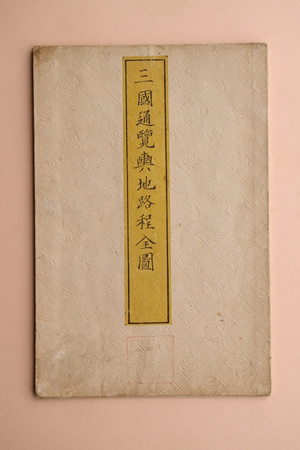 三國通覽輿地路程全圖